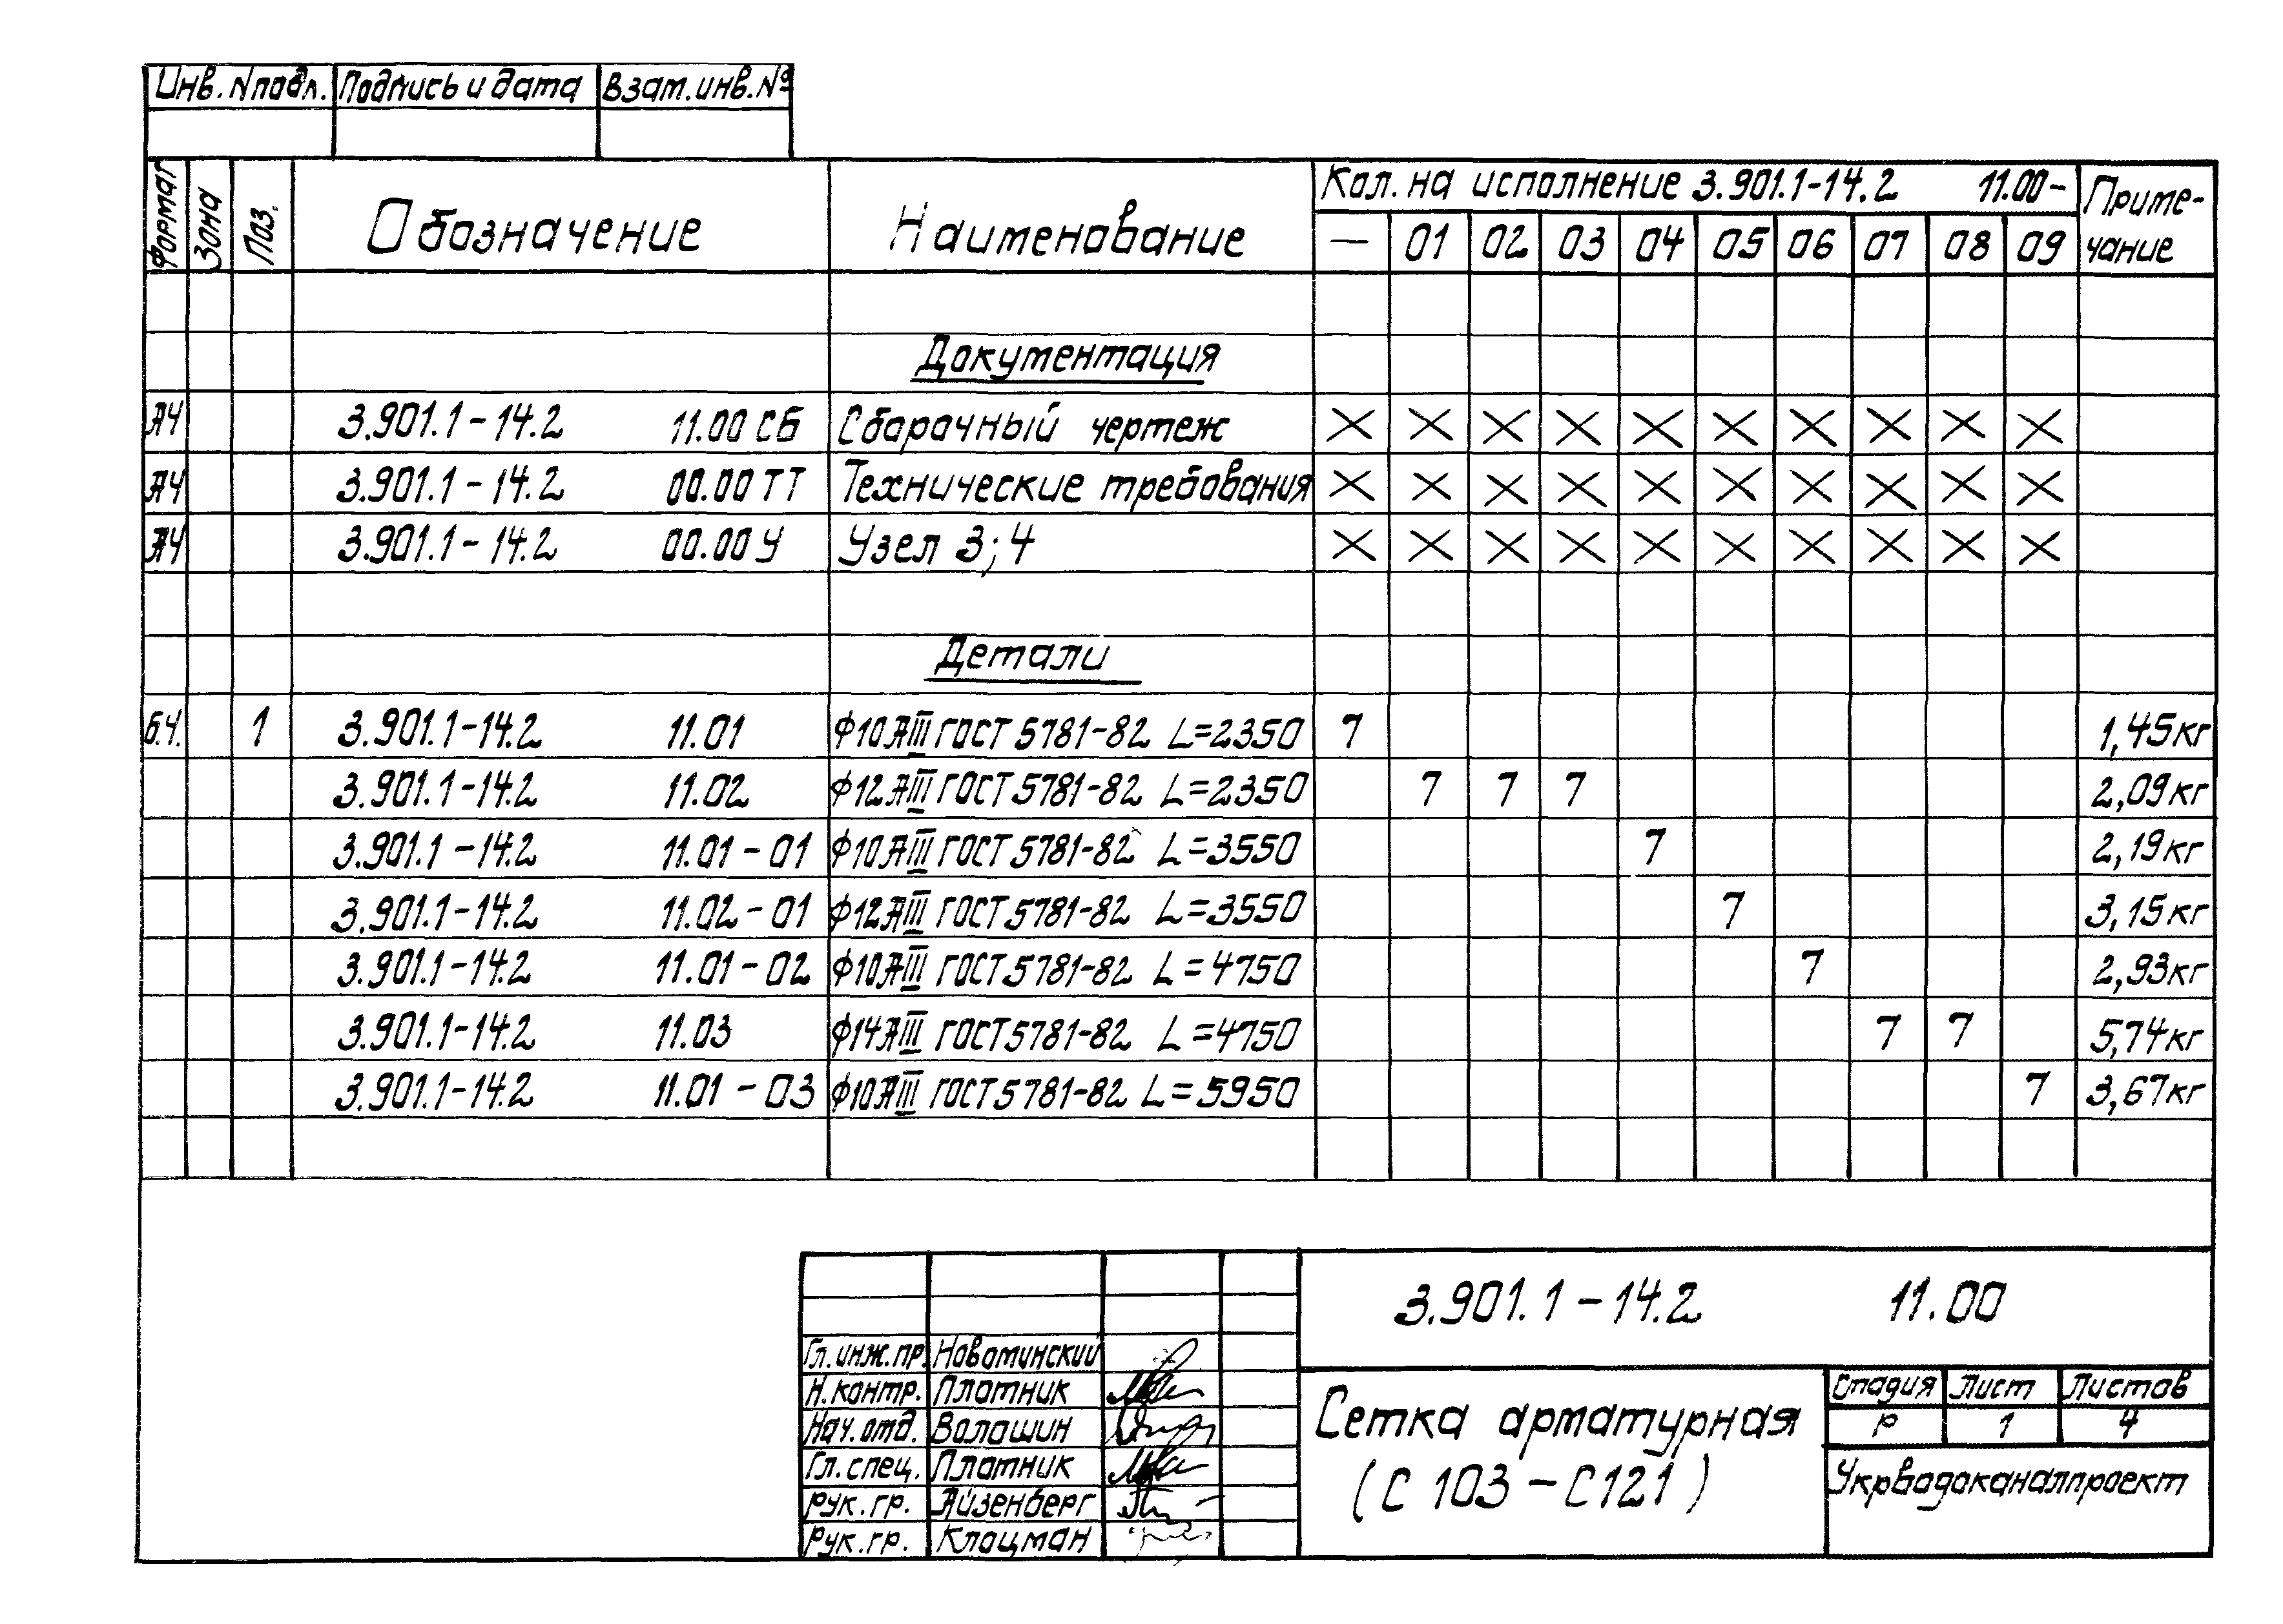 Инв. N подл. Подпись и дата Взам. инв. №
Формат Зона Поз. Обозначение Наименование Кол. на исполнение 3.901.1-14.2 11.00- Приме-
— 01 02 03 04 05 06 07 08 09 чание
Документация
А4 3.901.1-14.2 11.00 СБ Сборочный чертеж X X X X X X X X X X
А4 3.901.1-14.2 00.00 ТТ Технические требования X X X X X X X X X X
А4 3.901.1-14.2 00.00 У Узел 3; 4 X X X X X X X X X X
Детали
Б.Ч. 1 3.901.1-14.2 11.01 Ф10АIII ГОСТ 5781-82 L=2350 7 1,45кг
3.901.1-14.2 11.02 Ф12АIII ГОСТ 5781-82 L=2350 7 7 7 2,09кг
3.901.1-14.2 11.01-01 Ф10АIII ГОСТ 5781-82 L=3550 7 2,19кг
3.901.1-14.2 11.02-01 Ф12АIII ГОСТ 5781-82 L=3550 7 3,15кг
3.901.1-14.2 11.01-02 Ф10АIII ГОСТ 5781-82 L=4750 7 2,93кг
3.901.1-14.2 11.03 Ф14АIII ГОСТ 5781-82 L=4750 7 7 5,74кг
3.901.1-14.2 11.01-03 Ф10АIII ГОСТ 5781-82 L=5950 7 3,67кг
3.901.1-14.2 11.00
Гл. инж. пр. Новоминский
Н. контр. Плотник
Нач. отд. Волошин
Гл. спец. Плотник
Рук. гр. Айзенберг
Рук. гр. Клоцман
Сетка арматурная
(С 103 - С121)
Стадия Лист Листов
Р 1 4
Укрводоканалпроект